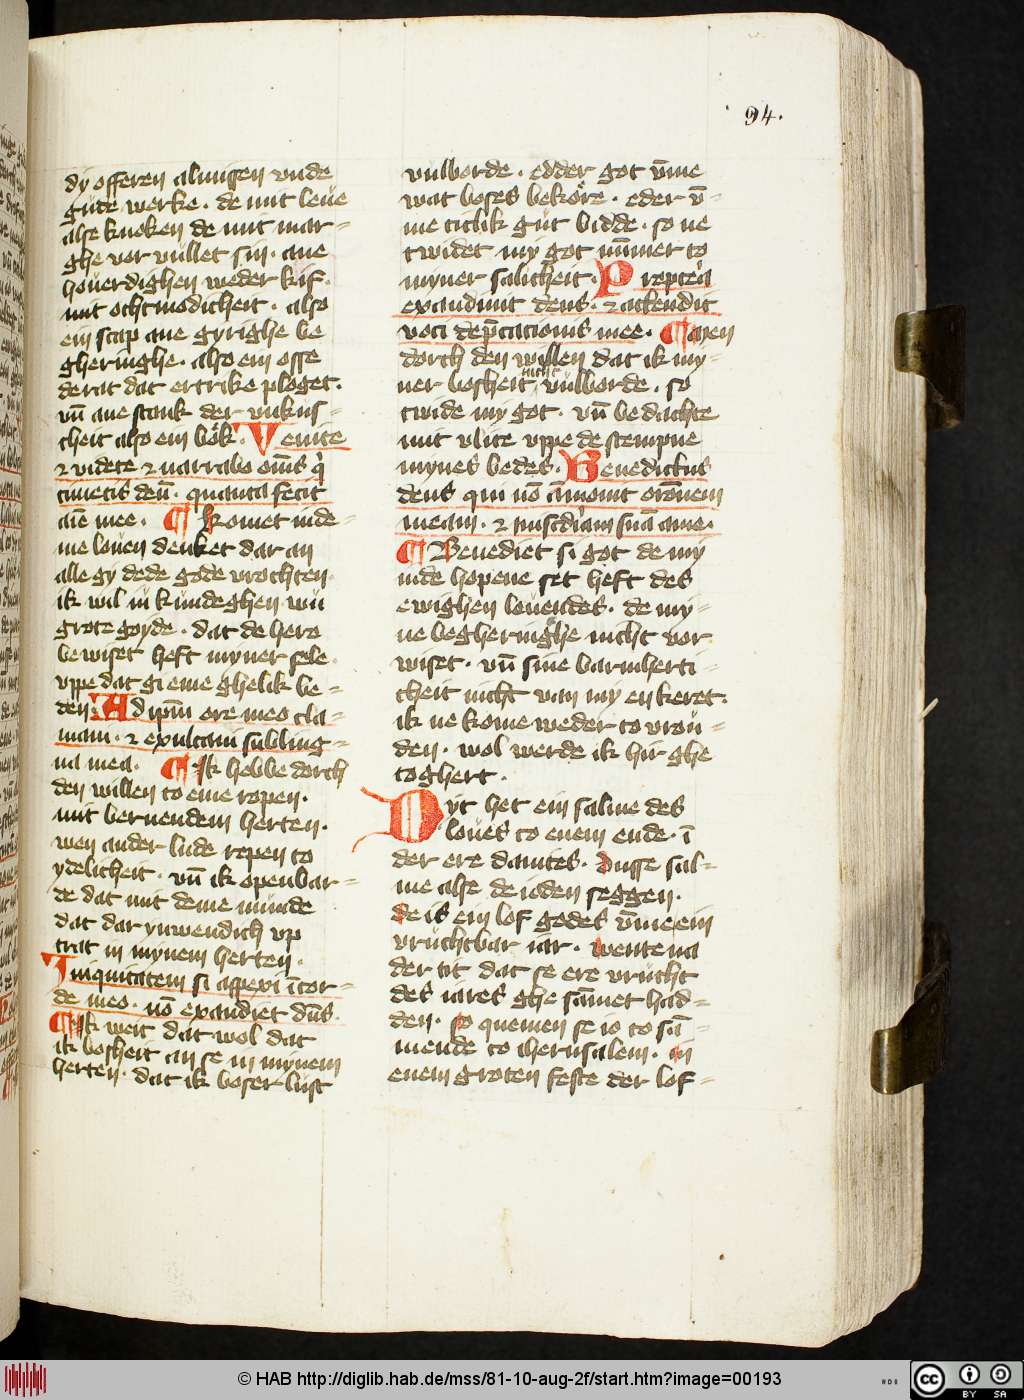 94.
dy offeren almissen vnde
gude werke · de mit leue
alse knoken de mit mar-
ghe vor vullet sin · ane
houerdighen weder kif ·
mit ochtmodicheit · also
ein scap ane gyrighe be
gheringhe · also ein osse
de rat dat ertrike ploget ·
vn̄ ane stank der vnkus-
cheit also ein bok · Venite
⁊ videte ⁊ narrabo om̄s q̇
timetis deū · quanta fecit
aīe mee · ¶ Komet inde-
me louen denket dar an
alle gy de de gode vrochten
ik wil iu kundeghen wu
grote goyde · dat de here
bewiset heft myner sele ·
vppe dat gi eme ghelik be-
den · Ad ip̄m ore meo cla-
maui · ⁊ exultaui sub ling-
ua mea · ¶ Ik hebbe dorch
den willen to eme ropen ·
mit bernendem herten ·
wen ander lude repen to
ydelicheit · vn̄ ik openbar-
de dat mit deme munde
dat dar ynwendich vp
trat in mynem herten ·
Iniquitatem si aspexi ī cor-
de meo · nō exaudiet dn̄s ·
¶ Ik weit dat wol dat
ik bosheit an se in mynem
herten · dat ik boser lust
vulborde · edder got vm̄e
wat boses bekore · eder v̄-
me titlik gut bidde · so ne
twidet my got nūmer to
myner salicheit · Propterea
exaudiuit deus · ⁊ attendit
voci dep̄cationis mee · ¶ Men
dorch den willen dat ik my-
ner bosheit nicht vulborde · so
twide my got · vn̄ bedachte
mit vlite vppe de stempne
mynes bedes · Benedictus
deus qui nō āmouit orōnem
meam · ⁊ mīsc̄diam suā a me ·
¶ Benediet si got de my
in de hopene set heft des
ewighen leuendes · de my-
ne begheringhe nicht vor
wiset · vn̄ sine barmherti-
cheit nicht van my en keret ·
ik ne kome weder to vrou-
den · wol werde ik hir ghe
toghert ·
Dyt het ein salme des
loues to enem ende · ī
der ere dauites · Dusse sal-
me alse de ioden seggen ·
de is ein lof godes vm̄e ein
vruchtbar iar · wente na
der tit dat se ere vrucht
des iares ghe sāmet had-
den · so quemen se io to sā-
mende to iherusalem · in
enem groten feste der lof-
© HAB http://diglib.hab.de/mss/81-10-aug-2f/start.htm?image=00193
BY SA